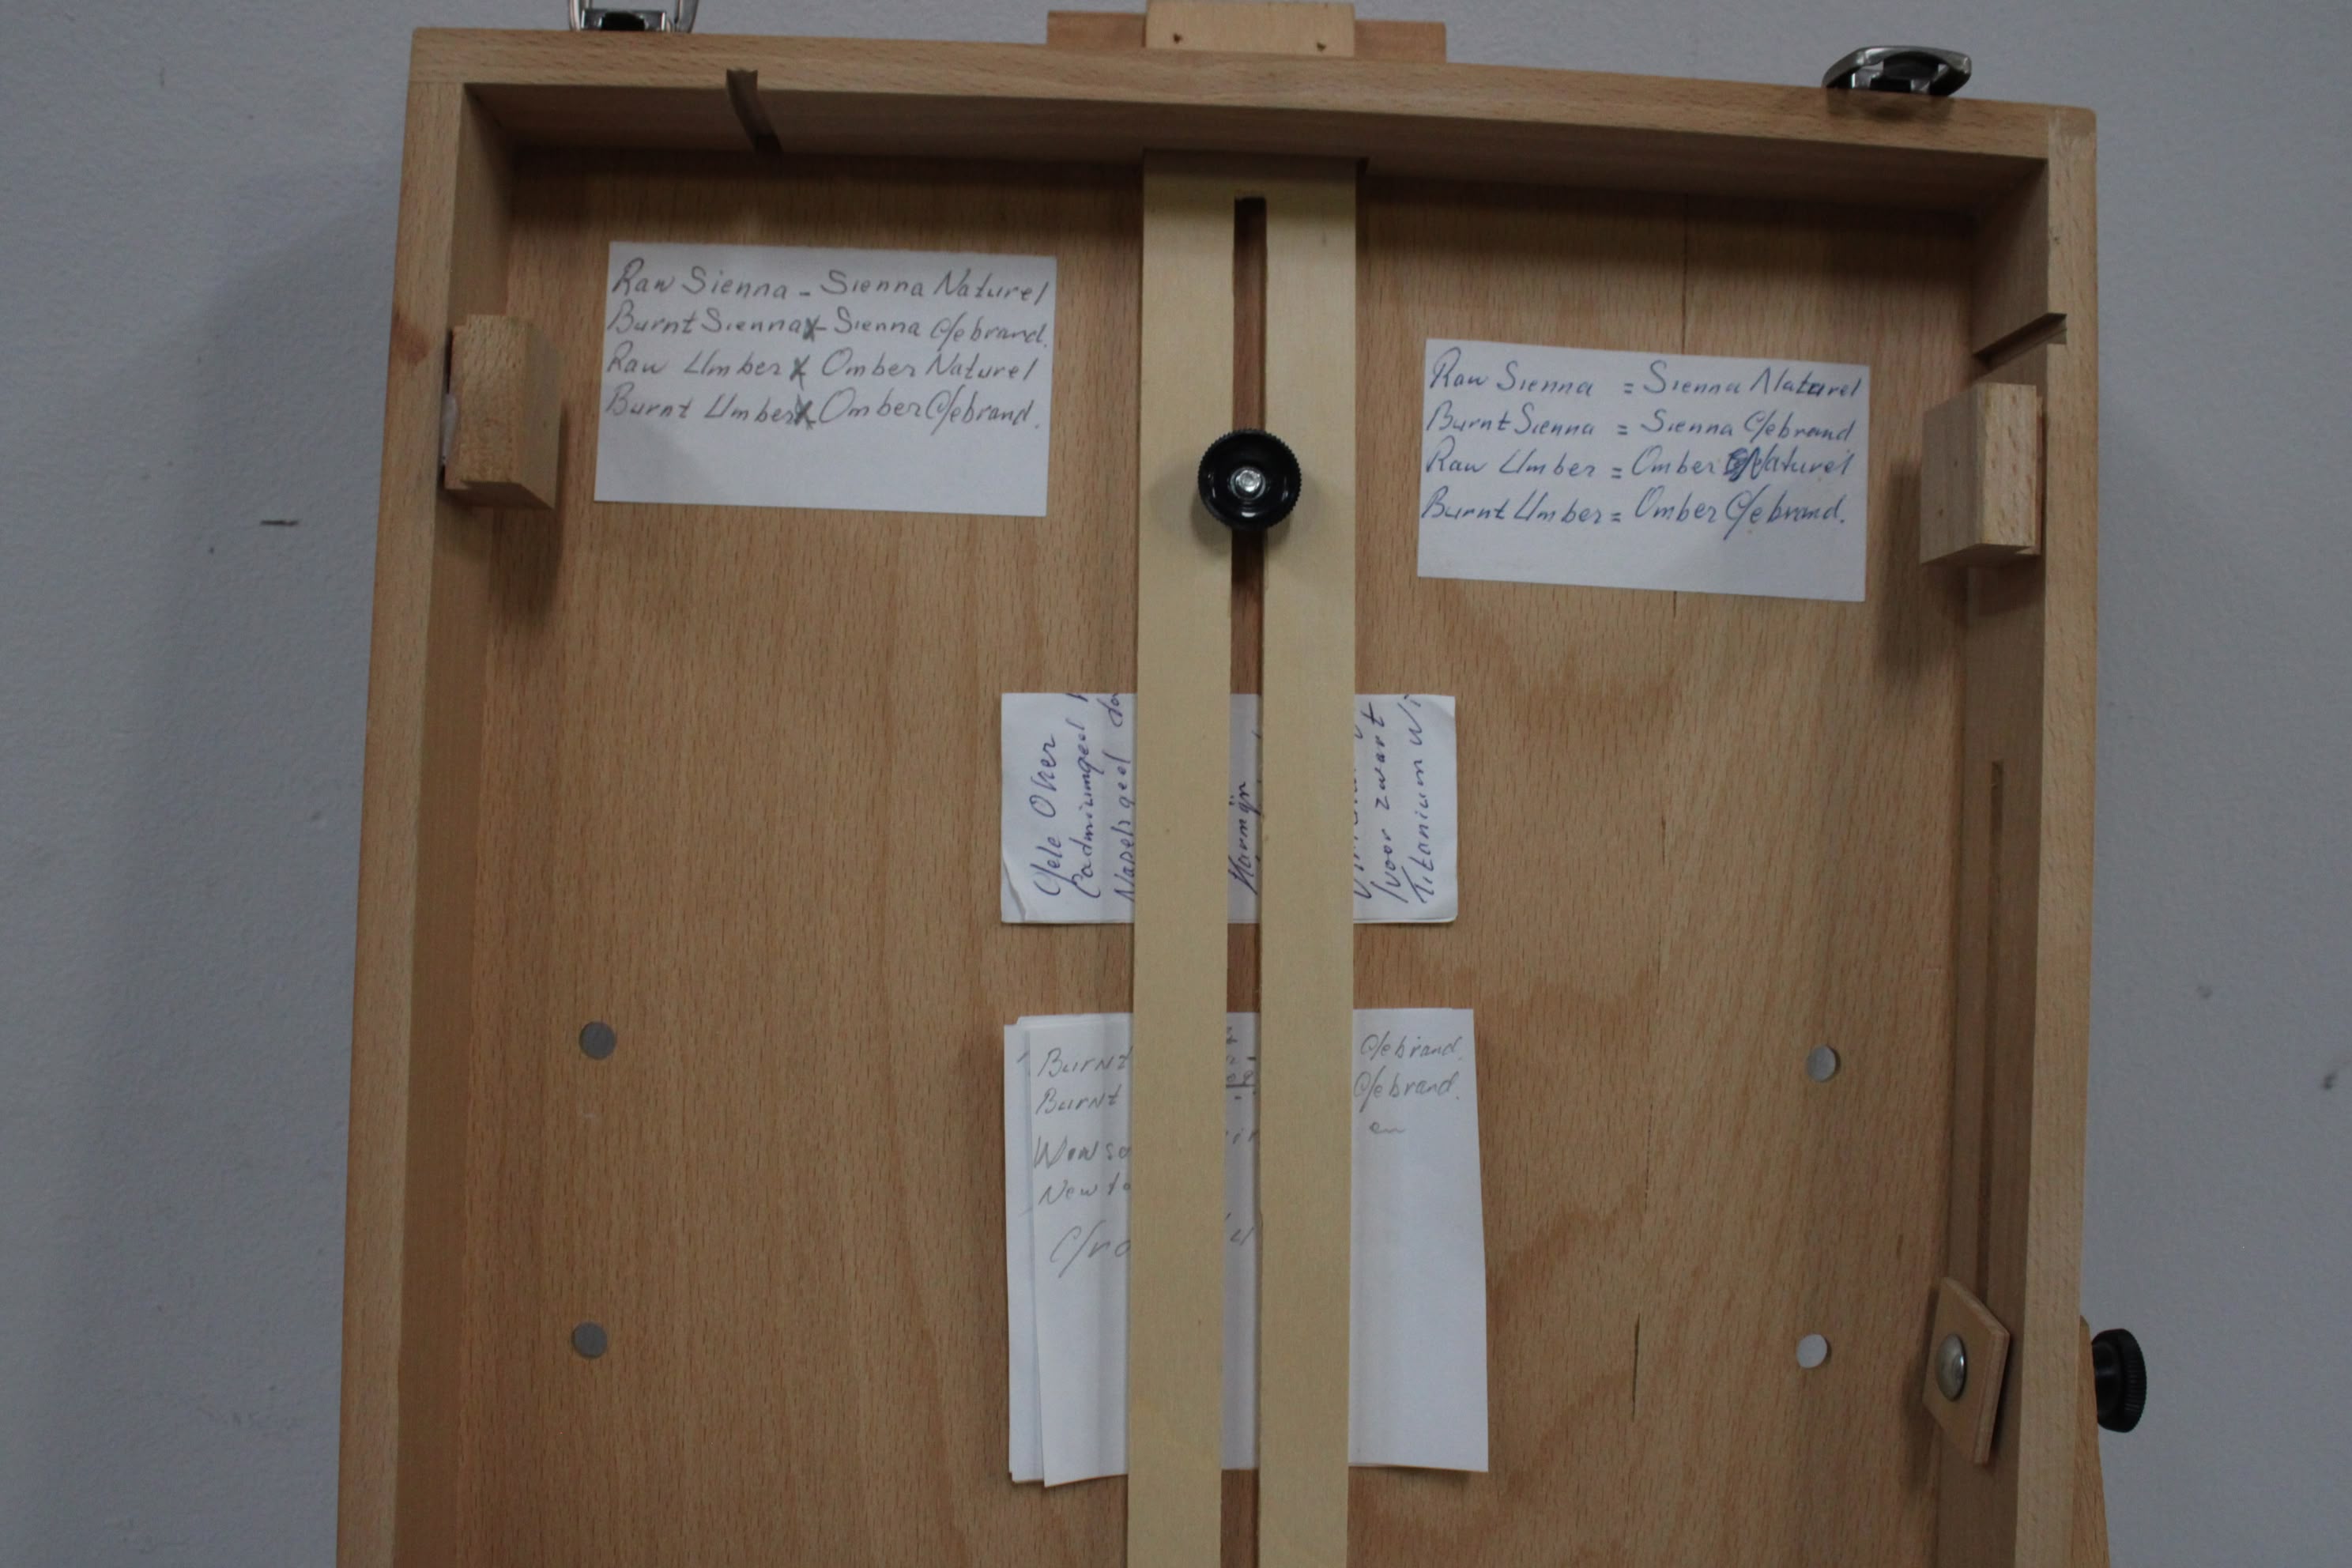 Raw Sienna - Sienna Naturel
Burnt Sienna x- Sienna Gebrand.
Raw Umber x Omber Naturel
Burnt Umber x Omber Gebrand.
Raw Sienna = Sienna Naturel
Burnt Sienna = Sienna Gebrand
Raw Umber = Omber Naturel
Burnt Umber = Omber Gebrand.
Gele Oker
Cadmiumgeel
Napels geel do
Karmijn
Ivoor zwart
Titanium Wi
Burnt Gebrand.
Burnt Gebrand.
en
Newto